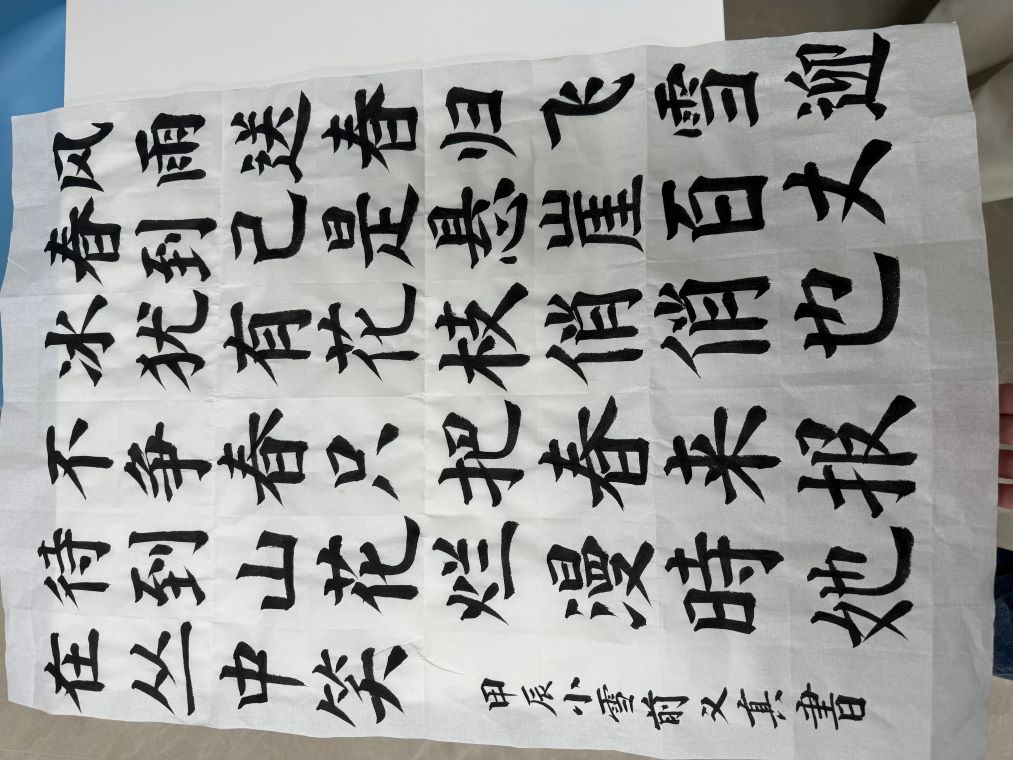 风雨送春归飞雪迎
春到已是悬崖百丈
冰犹有花枝俏俏也
不争春只把春来报
待到山花烂漫時她
在丛中笑
甲辰小雪前义真書